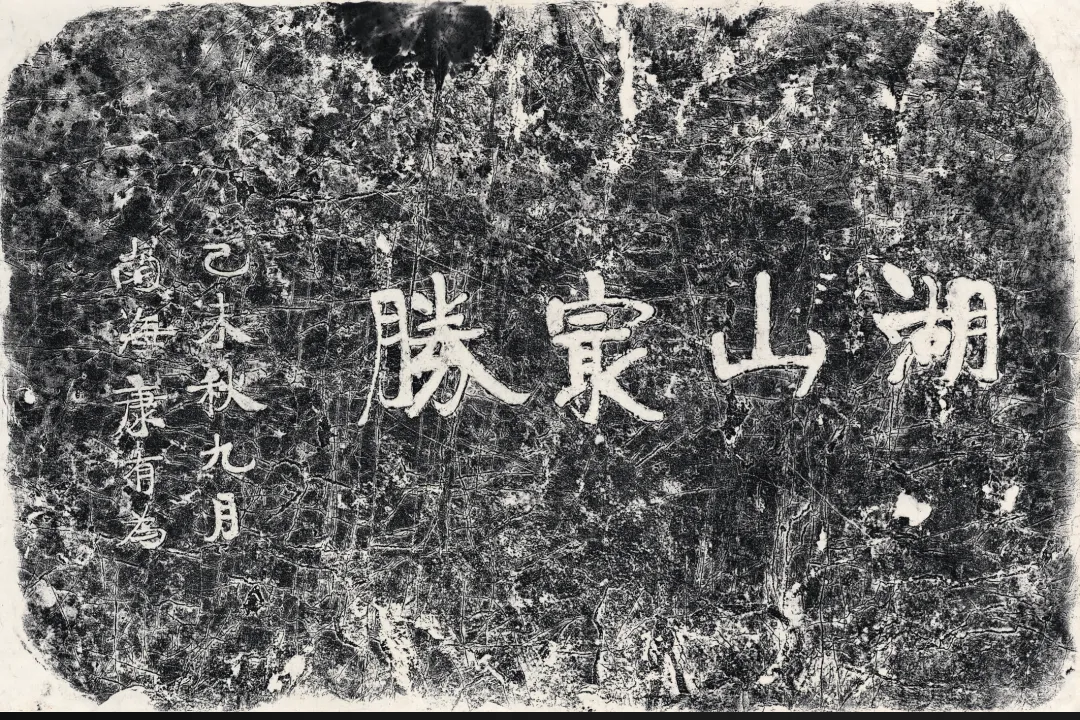 湖山冣勝
己未秋九月
南海康有為